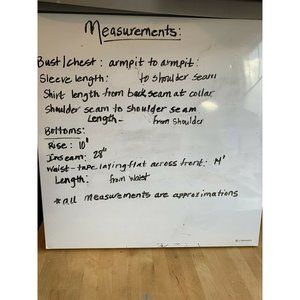 Measurements:
Bust/chest: armpit to armpit:
Sleeve length: to shoulder seam
Shirt length from back seam at collar
Shoulder seam to shoulder seam
Length- from shoulder
Bottoms:
Rise: 10"
Inseam: 28"
Waist-tape laying flat across front: 14"
Length: from waist
*all measurements are approximations